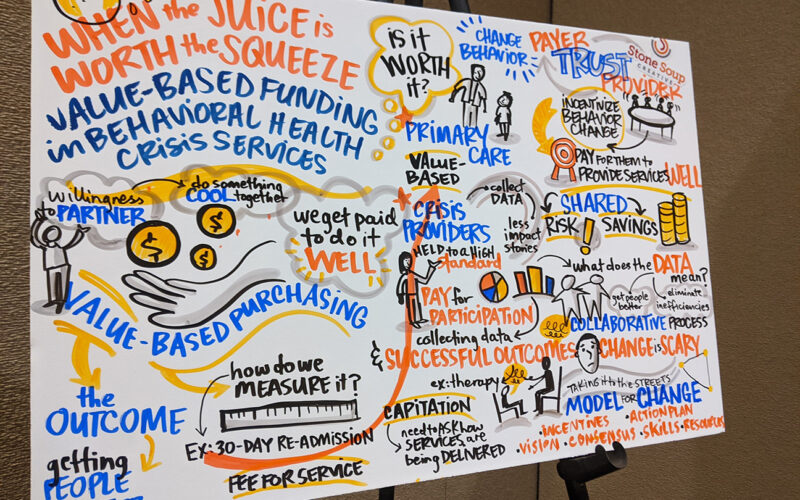 WHEN the JUICE is
WORTH the SQUEEZE
VALUE-BASED FUNDING
in BEHAVIORAL HEALTH
CRISIS SERVICES
willingness
to PARTNER
do something
COOL together
$
$
$
we get paid
to do it
WELL
VALUE-BASED PURCHASING
the
OUTCOME
getting
PEOPLE
how do we
MEASURE it?
EX: 30-DAY RE-ADMISSION
FEE FOR SERVICE
IS it
WORTH
it?
CHANGE
BEHAVIOR =
PRIMARY
CARE
VALUE-
BASED
CRISIS
PROVIDERS
HELD to a HIGH
standard
PAY for
PARTICIPATION
collecting data
& SUCCESSFUL OUTCOMES
ex: therapy
CAPITATION
need to ASK how
SERVICES are
being DELIVERED
collect
DATA
less
impact
stories
PAYER
TRUST
PROVIDER
Stone Soup
CREATIVE
INCENTIVIZE
BEHAVIOR
CHANGE
PAY FOR THEM to
PROVIDE SERVICES WELL
SHARED
RISK ! SAVINGS
what does the DATA
mean?
get people
better
eliminate
inefficiencies
COLLABORATIVE PROCESS
CHANGE is SCARY
TAKING it to the STREETS
MODEL FOR CHANGE
• INCENTIVES • ACTION PLAN
• VISION • CONSENSUS • SKILLS • RESOURCES